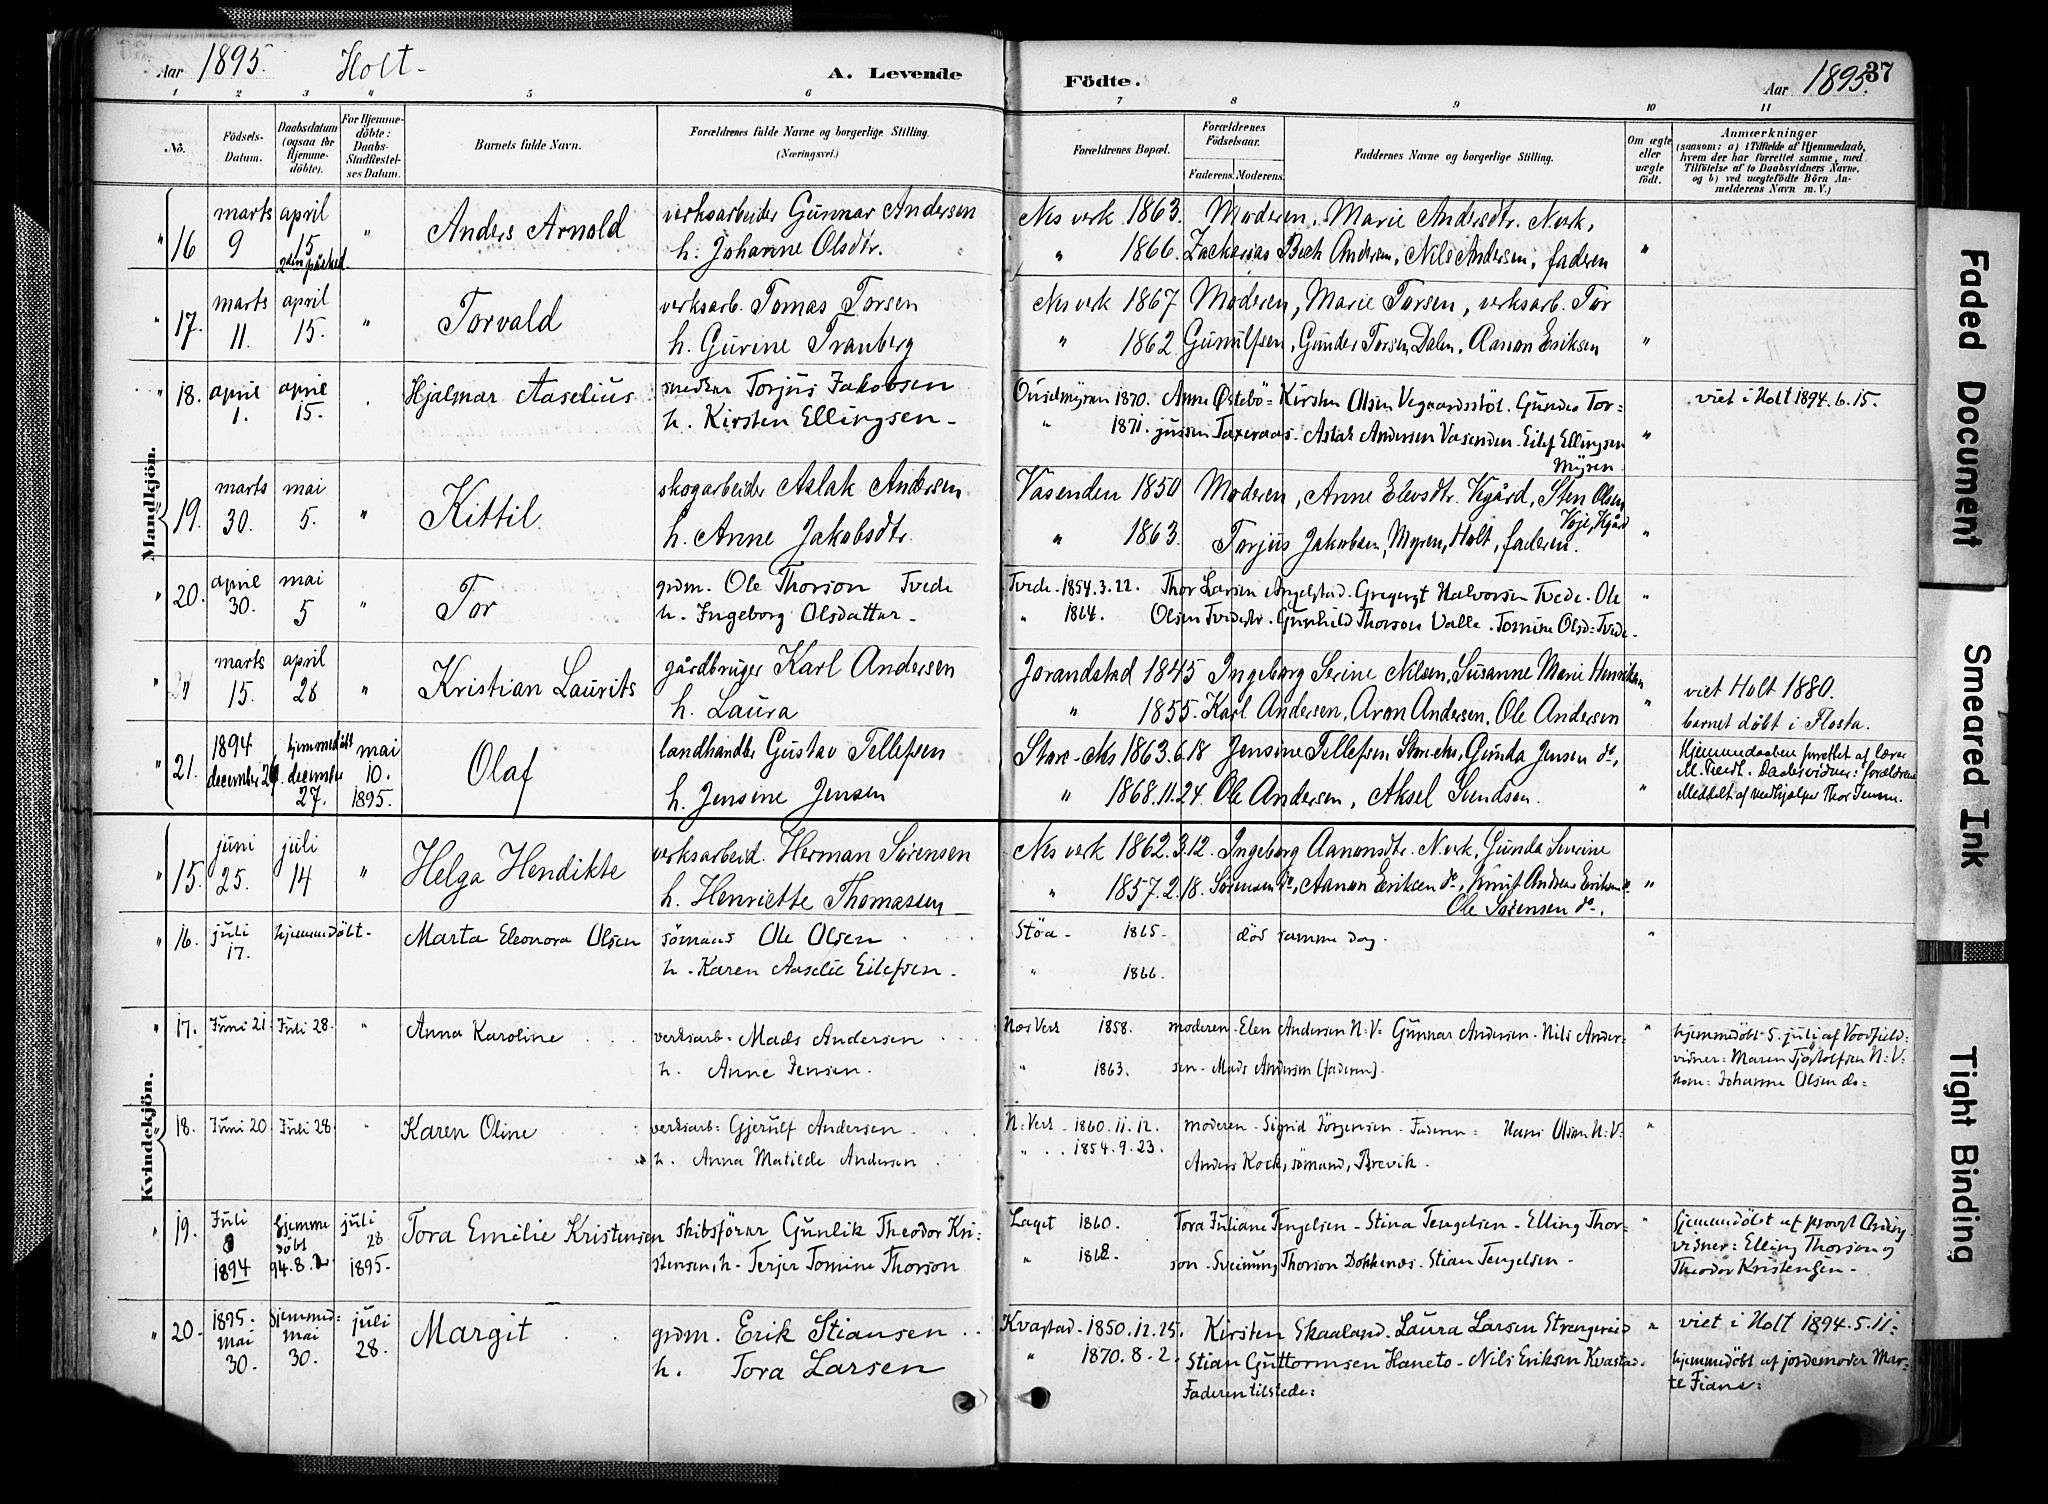 Aar 1895. Holt - A. Levende Födte. Aar 1895. 37
1 2 3 4 5 6 7 8 9 10 11
No. Födsels-Datum. Daabsdatum (ogsaa for Hjemme-döbte). For Hjemme-döbte: Daabs-Stadfestel-ses Datum. Barnets fulde Navn. Forældrenes fulde Navne og borgerlige Stilling. (Næringsvei.) Forældrenes Bopæl. Forældrenes Födselsaar. Faderens. Moderens. Faddernes Navne og borgerlige Stilling. Om ægte eller uægte födt. Anmærkninger (saasom: a) i Tilfælde af Hjemmedaab, hvem der har forrettet samme, med Tilföielse af to Daabsvidners Navne, og b) ved uægtefödte Börn An-melderens Navn m. V.)
Mandkjön.
" 16 marts 9 april 15 2den påsked. " Anders Arnold verksarbeider Gunnar Andersen Nes verk 1863. Moderen, Marie Andersdtr. N.verk,
h. Johanne Olsdtr. " 1866. Zackarias Bech Andersen, Nils Andersen, faderen "
" 17. marts 11. april 15. " Torvald verksarb. Tomas Torsen Nes verk 1867 Moderen, Marie Torsen, verksarb. Tor
h. Gurine Tranberg " 1862 Gunulfsen, Gunder Torsen, Dalen, Aanon Eriksen "
" 18. april 1. april 15. Hjalmar Aaselius smeden Torjus Jakobsen 1870. Anne Østebö = Kirsten Olsen Vegaardsstöl. Gunder Tor= viet i Holt 1894.6.15.
h. Kirsten Ellingsen - " 1871. jussen Taxeraas. Aslak Andersen Vasenden. Eilef Ellingsen "
Myren.
19. marts 30. mai 5. " Kittil skogarbeider Aslak Andersen Vasenden 1850 Moderen, Anne Elevsdtr. Vegård, Sten Olsen
Voje, Vgård
h. Anne Jakobsdtr. " 1863. Torjus Jakobsen, Myren, Holt, faderen. "
" 20. april 30. mai 5 " Tor grdm. Ole Thorson Tvede Tvede - 1854.3.22. Thor Larsen Angelstad. Gregert Halvorsen Tvede. Ole "
h. Ingeborg Olsdatter - " 1864. Olsen Tvedestr. Gunhild Thorson Valle. Tomine Olsd= Tvede -
" marts 15. april 28 " Kristian Laurits gårdbruger Karl Andersen Jorandstad 1845 Ingeborg Serine Nilsen, Susanne Marie Henriksen viet Holt 1880.
h. Laura " 1855. Karl Andersen, Aron Andersen, Ole Andersen " barnet döbt i Flosta.
" 21. 1894 december 24. hjemmedöbt december 27. mai 10. 1895. Olaf landhandler Gustav Tellefsen 1863.6.18 Jensine Tellefsen Gunda Jensen do, Hjemmedaaben forrettet af lærer
h. Jensine Jensen " 1868.11.24. Ole Andersen, Aksel Svendsen. " M. Tvedt. Daabsvidner: forældrene
Meddelt af Thor Jensen.
Kvindekjön.
" 15. juni 25. juli 14 " Helga Hendikte verksarbeid. Herman Sørensen Nes verk 1862.3.12. Ingeborg Aanonsdtr. N.verk, Gunda Severine
h. Henriette Thomassen " 1857.2.18. Sørensen do, Aanon Eriksen do, Knut Andreas Eriksen do. "
Ole Sørensen do.
" 16. juli 17. hjemmedöbt - Marta Eleonora Olsen sömand Ole Olsen Stöa - 1865. död samme dag. "
h - Karen Aaselie Eilefsen - " 1866.
" 17. Juni 21. Juli 28. " Anna Karoline verksarb = Mads Andersen Nes Verk 1858. moderen - Elen Andersen N:V= Gunnar Andersen - Nils Ander= " hjemmedöbt 5. juli af
h. Anne Jensen. " 1863. sen. Mads Andersen (faderen). vidner = Maren Tjöstolfsen N:V=
kone = Johanne Olsen do=
18. Juni 20 Juli 28 " Karen Oline verksarb= Gjerulf Andersen N: Verk 1860.11.12. moderen - Sigrid Jörgensen. Faderen = Hans Olsen N:V= "
h. Anna Matilde Andersen " 1854.9.23. Anders Kock, sömand, Brevik.
" 19. Juli 8 1894 hjemme döbt 94.8. juli 28 1895. Tora Emilie Kristensen skibsförer Gunlik Theodor Kri= Laget 1860. Tora Juliane Tengelsen - Stina Tengelsen - Elling Thor= " hjemmedöbt af provst
stensen, h - Terjer Tomine Thorson " 1868. son - Sveinung Thorson Dokkenæs. Stian Tengelsen - vidner = Elling Thorson og
Theodor Kristensen -
" 20. 1895. mai 30. hjemmed= mai 30. juli 28. Margit grdm. Erik Stiansen Kvastad - 1850.12.25. Kirsten Skaaland. Laura Larsen Strengereid " viet i Holt 1894.5.11=
h. Tora Larsen " 1870.8.2. Stian Guttormsen Haneto - Nils Eriksen Kvastad. hjemmedöbt af jordemoder Mar=
Faderen tilstede= te Fiane=
Faded Document
Smeared Ink
Tight Binding